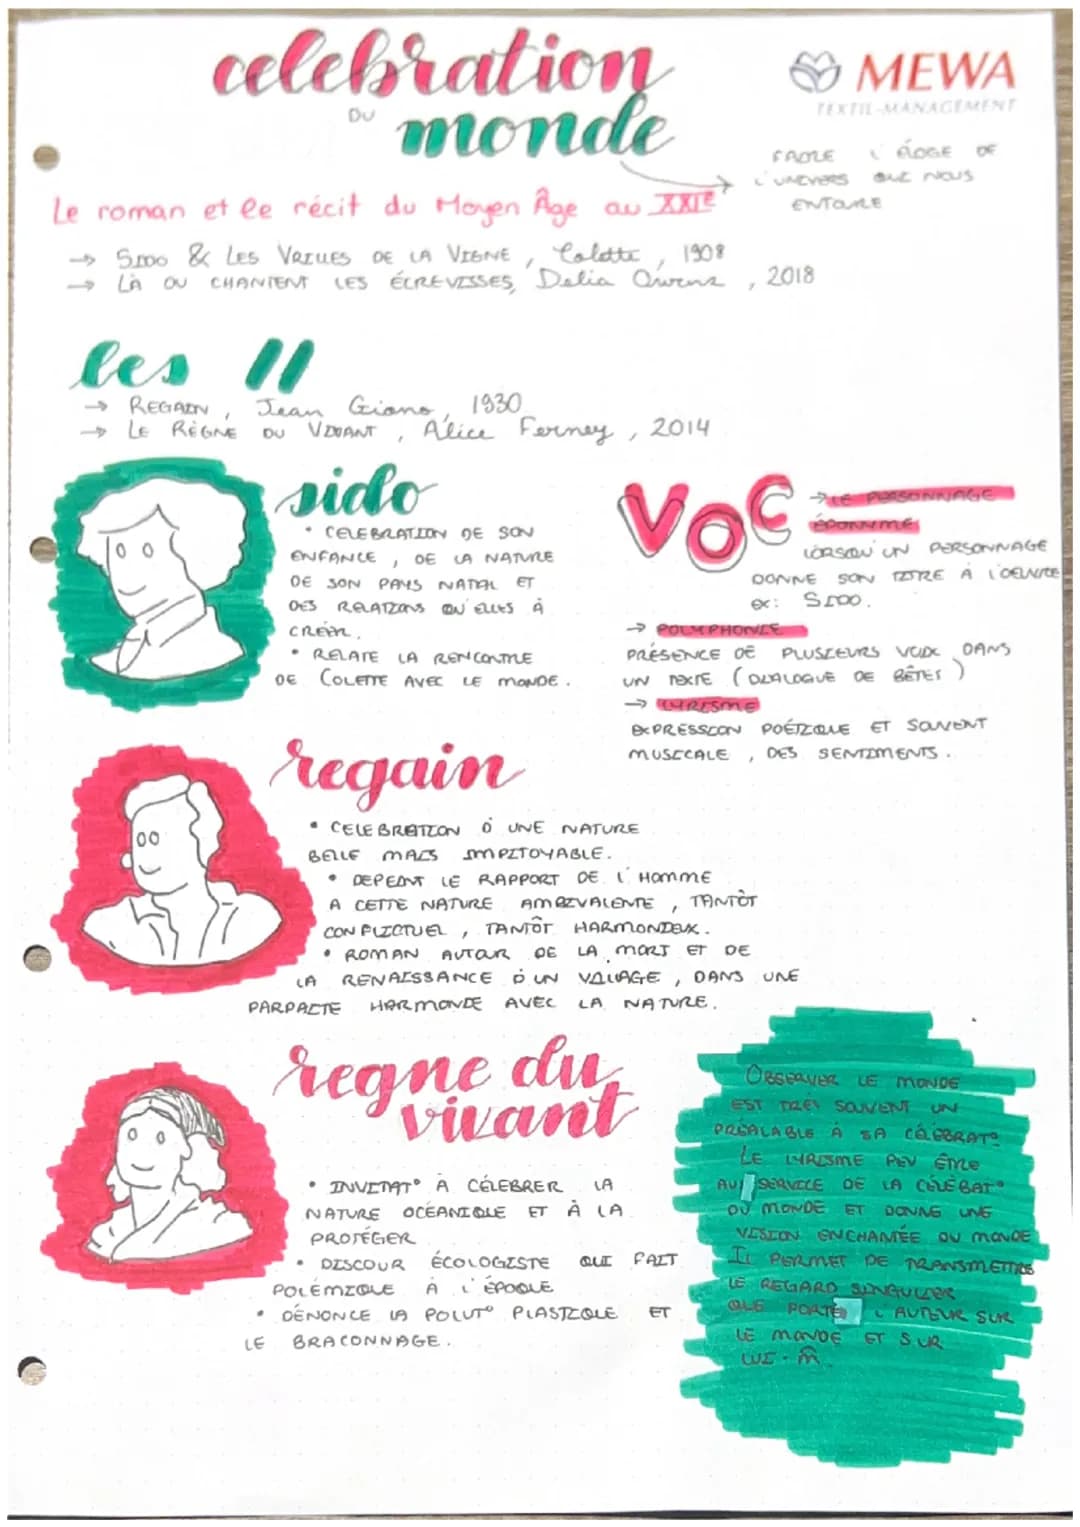 celebration
DU
monde
MEWA
TEXTIL-MANAGEMENT
FAIRE L'ÉLOGE DE
L'UNIVERS QUI NOUS
ENTOURE
Le roman et le récit du Moyen Âge au XXIe
→ SIDO & LES VRILLES DE LA VIGNE, Colette, 1908
→ LÀ OU CHANTENT LES ÉCREVISSES, Delia Owens, 2018
les //
→ REGAIN, Jean Giono, 1930
→ LE RÈGNE DU VIVANT, Alice Ferney, 2014
sido
• CELEBRATION DE SON
ENFANCE, DE LA NATURE
DE SON PAYS NATAL ET
DES RELATIONS QU'ELLES À
CRÉER.
• RELATE LA RENCONTRE
DE COLETTE AVEC LE MONDE.
VOC
→ LE PERSONNAGE
ÉPONYME
LORSQU'UN PERSONNAGE
DONNE SON TITRE À L'OEUVRE
ex: SIDO.
→ POLYPHONIE
PRÉSENCE DE PLUSIEURS VOIX DANS
UN TEXTE (DIALOGUE DE BÊTES)
→ LYRISME
EXPRESSION POÉTIQUE ET SOUVENT
MUSICALE, DES SENTIMENTS.
regain
• CELEBRATION D'UNE NATURE
BELLE MAIS IMPITOYABLE.
• DEPEINT LE RAPPORT DE L'HOMME
A CETTE NATURE AMBIVALENTE, TANTÔT
CONFLICTUEL, TANTÔT HARMONIEUX.
• ROMAN AUTOUR DE LA MORT ET DE
LA RENAISSANCE D'UN VILLAGE, DANS UNE
PARFAITE HARMONIE AVEC LA NATURE.
regne du
vivant
• INVITAT° À CÉLEBRER LA
NATURE OCÉANIQUE ET À LA
PROTÉGER
• DISCOUR ÉCOLOGISTE QUI FAIT
POLÉMIQUE À L'ÉPOQUE
• DÉNONCE LA POLUT° PLASTIQUE ET
LE BRACONNAGE.
OBSERVER LE MONDE
EST TRÈS SOUVENT UN
PRÉALABLE À SA CÉLÉBRAT°
LE LYRISME PEU ÊTRE
AU SERVICE DE LA CÉLÉBAT°
DU MONDE ET DONNE UNE
VISION ENCHANTÉE DU MONDE
IL PERMET DE TRANSMETTRE
LE REGARD SINGULIER
QUE PORTE L'AUTEUR SUR
LE MONDE ET SUR
LUI-M̂.